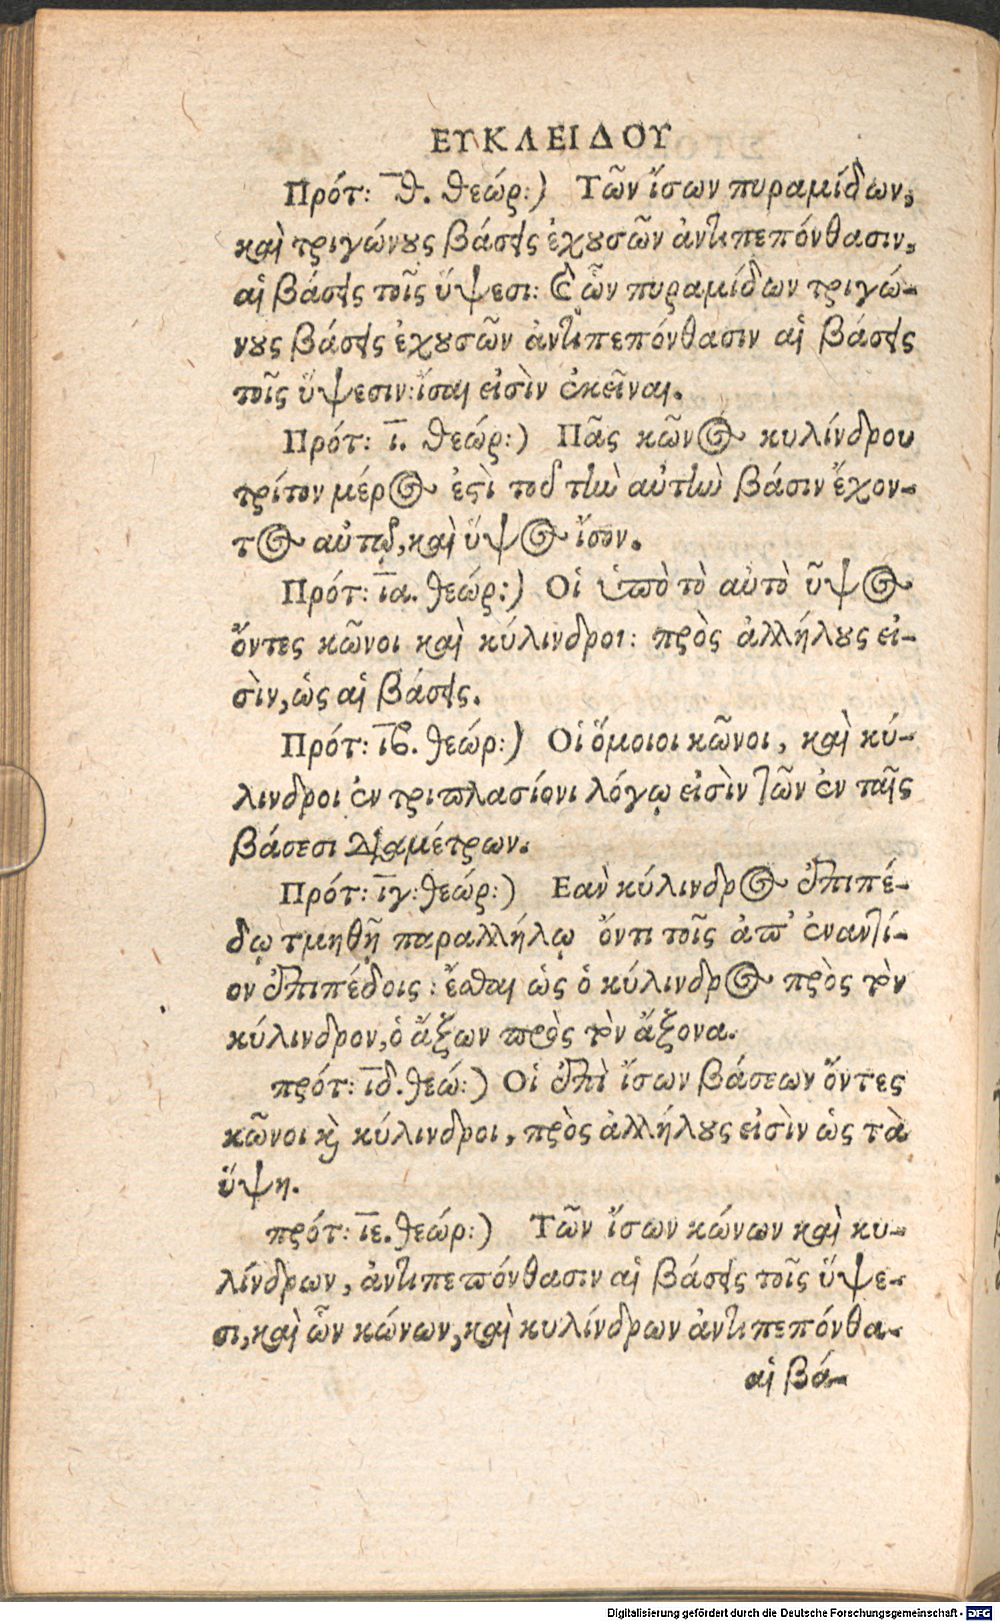 ΕΥΚΛΕΙΔΟΥ
Πρότ: θ̄. θεώρ:) Τῶν ἴσων πυραμίδων,
καὶ τριγώνους βάσεις ἐχουσῶν ἀντιπεπόνθασιν,
αἱ βάσεις τοῖς ὕψεσι: Καὶ ὧν πυραμίδων τριγώ-
νους βάσεις ἐχουσῶν ἀντιπεπόνθασιν αἱ βάσεις
τοῖς ὕψεσιν: ἴσαι εἰσὶν ἐκεῖναι.
Πρότ: ῑ. θεώρ:) Πᾶς κῶνος κυλίνδρου
τρίτον μέρος ἐστὶ τοῦ τὴν αὐτὴν βάσιν ἔχον-
τος αὐτῷ, καὶ ὕψος ἴσον.
Πρότ: ῑα. θεώρ:) Οἱ ὑπὸ τὸ αὐτὸ ὕψος
ὄντες κῶνοι καὶ κύλινδροι: πρὸς ἀλλήλους εἰ-
σὶν, ὡς αἱ βάσεις.
Πρότ: ῑβ. θεώρ:) Οἱ ὅμοιοι κῶνοι, καὶ κύ-
λινδροι ἐν τριπλασίονι λόγῳ εἰσὶν τῶν ἐν ταῖς
βάσεσι διαμέτρων.
Πρότ: ῑγ: θεώρ:) Εαν κύλινδρος ἐπιπέ-
δῳ τμηθῇ παραλλήλῳ ὄντι τοῖς ἀπ' ἐναντί-
ον ἐπιπέδοις: ἔσται ὡς ὁ κύλινδρος πρὸς τὸν
κύλινδρον, ὁ ἄξων πρὸς τὸν ἄξονα.
πρότ: ῑδ. θεώ:) Οἱ ἐπὶ ἴσων βάσεων ὄντες
κῶνοι καὶ κύλινδροι, πρὸς ἀλλήλους εἰσὶν ὡς τὰ
ὕψη.
πρότ: ῑε. θεώρ:) Τῶν ἴσων κώνων καὶ κυ-
λίνδρων, ἀντιπεπόνθασιν αἱ βάσεις τοῖς ὕψε-
σι, καὶ ὧν κώνων, καὶ κυλίνδρων ἀντιπεπόνθα-
αἱ βά-
Digitalisierung gefördert durch die Deutsche Forschungsgemeinschaft - DFG